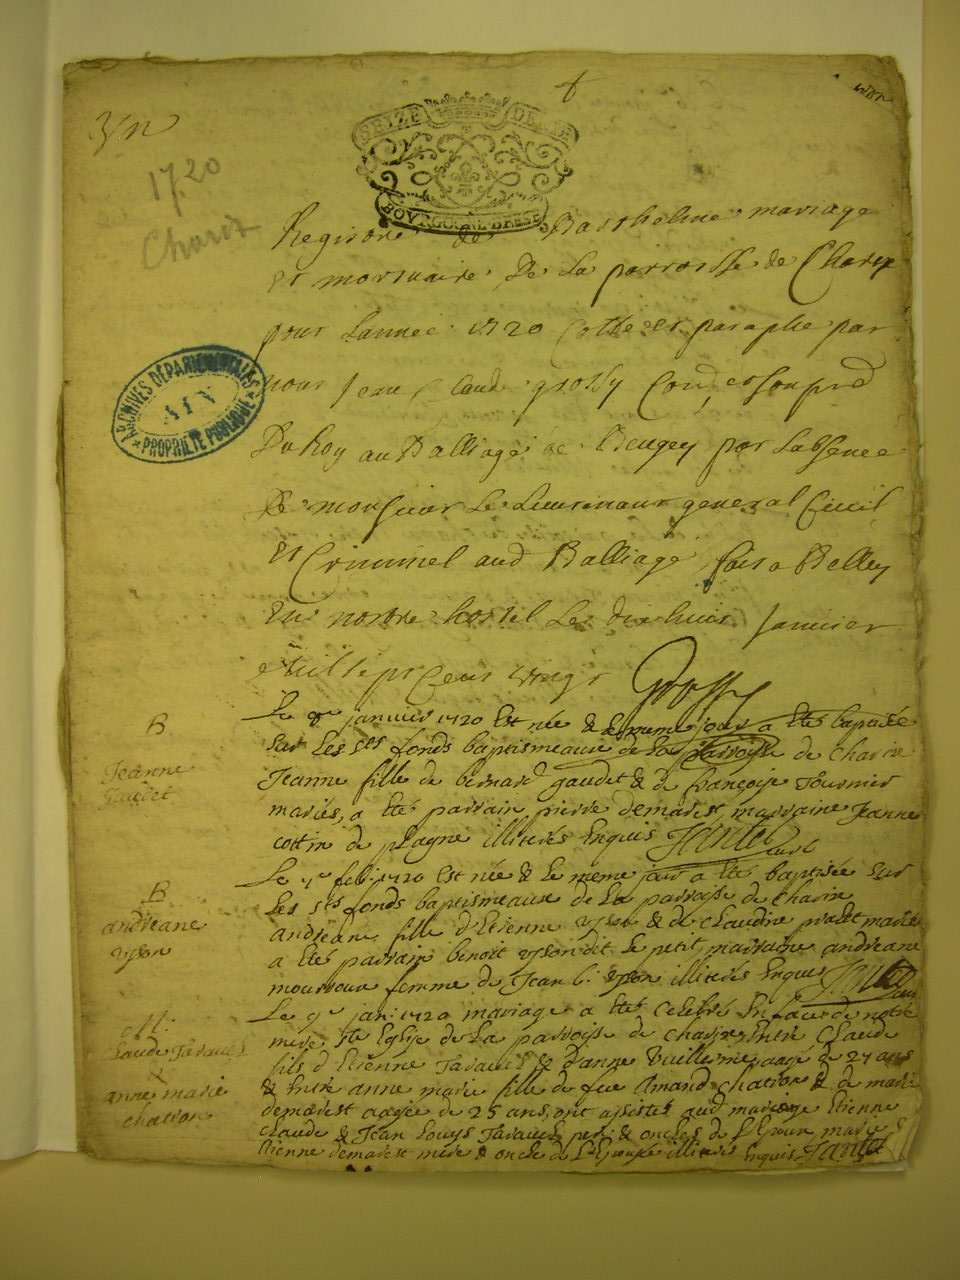 1720
Charix
SEIZE DEN.IE
BOVRGOGNE BRESSE
Registre des Baptheme mariage
et mortuaire De La parroisse de Charix
pour Lannée 1720 Cotté et paraphé par
nous Jean Claude grossy Con.er et
Du Roy au Balliage de Beugey por Labsence
De monsieur Le Lieutenant general Civil
et Criminel aud Balliage fait a Belley
En nostre hostel Le dix huit Janvier
mil sept Cent vingt Grossy
ARCHIVES DÉPARTEMENTALES
AIN
PROPRIÉTÉ PUBLIQUE
B
Jeanne
Gaudet
Le janvier 1720 Est née & le meme jour a été baptisée
sur Les sts fonds baptismeaux de La parroisse de charix
Jeanne fille de bernard gaudet & de françoise Tournier
mariés, a été parrain pierre demarest, marraine Jeanne
cottin de plagne illiterés Enquis Jantet curé
B
andréane
ysson
Le feb. 1720 Est née & Le meme jour a été baptisée sur
Les sts fonds baptismeaux de La parroise de charix
andréane fille d'Etienne ysson & de claudine pradet mariés
a été parrain benoit ysson dit Le petit marraine andréane
femme de Jean b. ysson illiterés Enquis Jantet curé
M.
claude Tavaux
&
anne marie
chatron
Le jan. 1720 mariage a été Celebré En face de notre
mere ste Eglise de La parroise de charix Entre claude
fils d'Etienne Tavaux & d'anne Vuillerme aagé de 27 ans
& Entre anne marie fille de feu Amand chatron & de marie
demarest aagée de 25 ans, ont assistés aud mariage Etienne
claude & Jean Louys Tavaux pere & oncles de L'Epoux marie &
Etienne demarest mere & oncle de L'Epouse illiterés Enquis Jantet